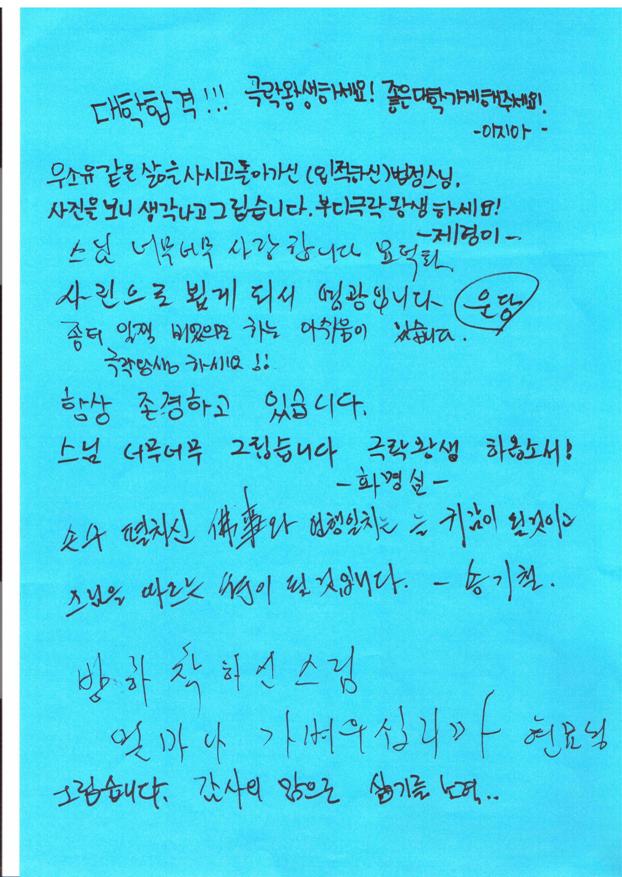 대학합격!!! 극락왕생하세요! 좋은대학가게해주세요!
-이지아-
무소유같은 삶을사시고돌아가신 (입적하신)법정스님,
사진을 보니 생각나고그립습니다. 부디극락왕생하세요!
-제형이-
스님 너무너무 사랑합니다 묘덕화
사진으로 뵙게 되서 영광입니다 운당
좀더 일찍 하는 아쉬움이 있습니다.
극락왕생 하세요!!
항상 존경하고 있습니다.
스님 너무너무 그립습니다 극락왕생 하옵소서!
-화경실-
손수 펼치신 佛事와 언행일치는 늘 귀감이 될것이고
스님을 따르는 이 될것입니다. - 송기철.
방하착하신스님
얼마나 가벼우십니까 현묘님
그립습니다. 감사의 맘으로 살기를 노력..